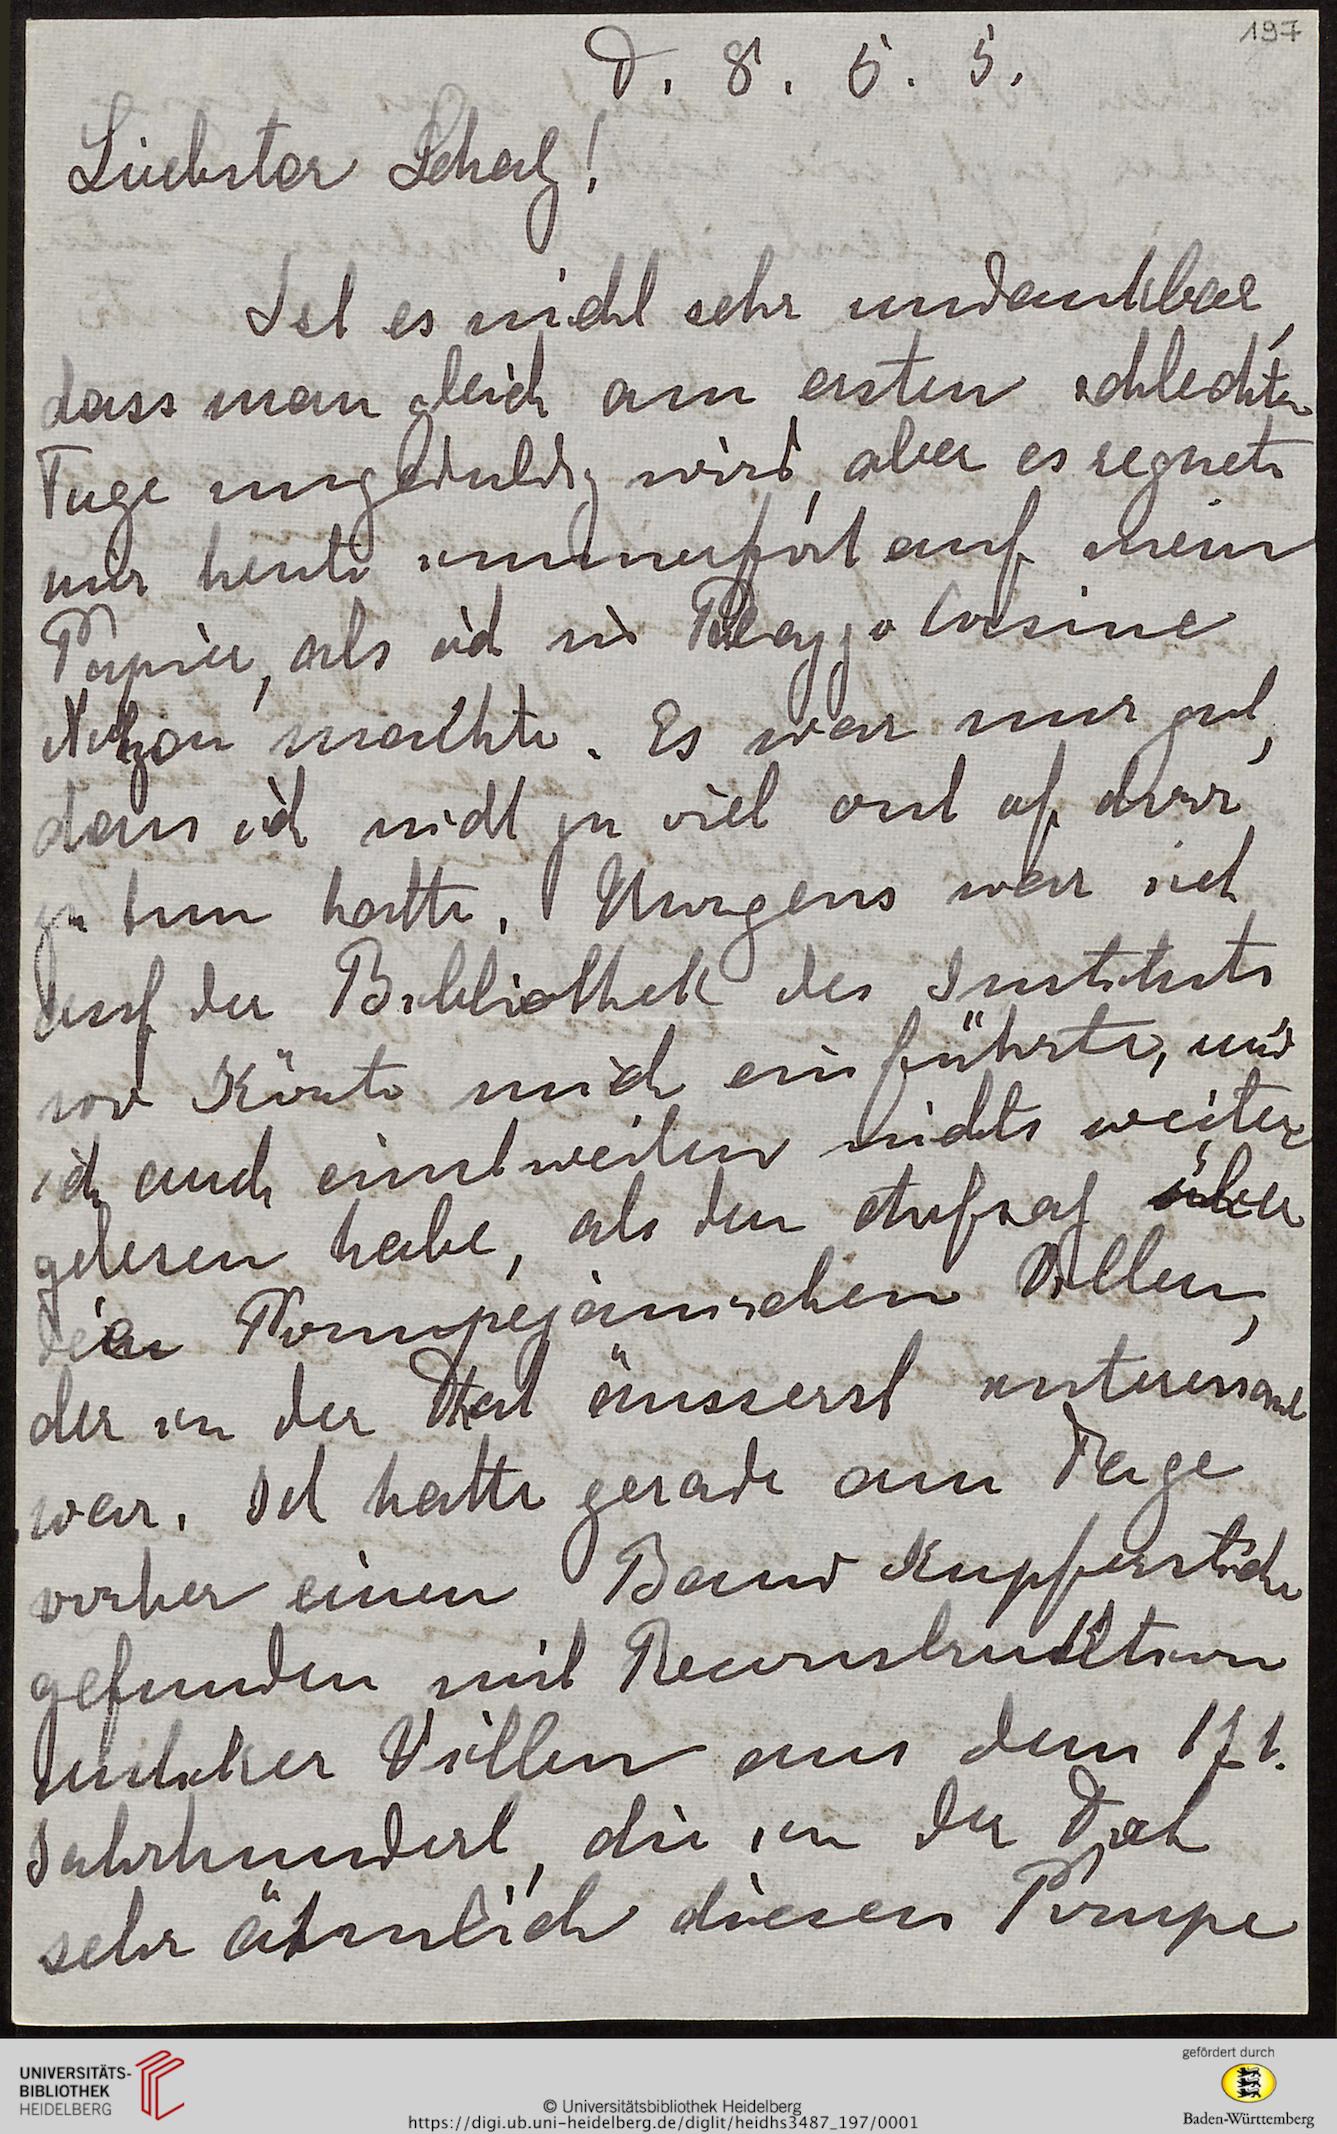 197
D. 8. 5. 5.
Liebster Schatz!
Ist es nicht sehr undankbar,
dass man gleich am ersten schlechten
Tage ungeduldig wird, aber es regnete
mir heute immerfort auf mein
Papier, als ich in Palazzo Corsine
Notizen machte. Es war nur gut,
dass ich nicht zu viel
zu tun hatte. Morgens war ich
auf der Bibliothek des Instituts
wo Körte mich einführte, und
ich auch einstweilen nichts weiter
gelesen habe, als den Aufsatz über
die Pompejanischen Villen,
der in der Tat äusserst interessant
war. Ich hatte gerade am Tage
vorher einen Band Kupferstiche
gefunden mit Reconstruktion
antiker Villen aus dem 17t.
Jahrhundert, die in der Tat
sehr ähnlich diesen Pompe
UNIVERSITÄTS-
BIBLIOTHEK
HEIDELBERG
gefördert durch
Baden-Württemberg
© Universitätsbibliothek Heidelberg
https://digi.ub.uni-heidelberg.de/diglit/heidhs3487_197/0001